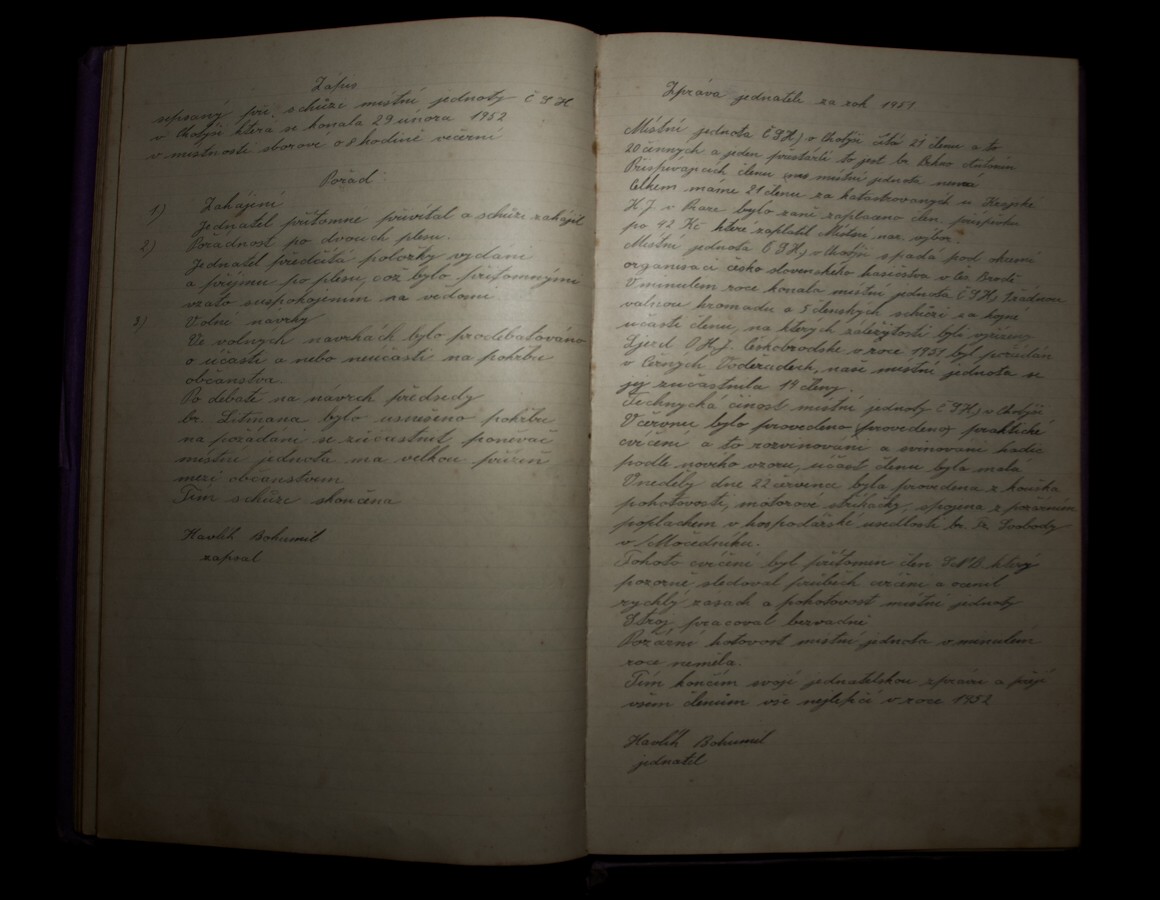 Zápis
sepsaný při schůzi místní jednoty Č S H
v Chotýši která se konala 29 února 1952
v místnosti sborové o 8 hodině večerní
Pořad:
1) Zahájení
Jednatel přítomne přivítal a schůzi zahájil
2) Pořadnost po dvouch plesu.
Jednatel předčítá položky vydání
a příjmu po plesu, což bylo přítomnými
vzato suspokojením na vědomí.
3) Volné navrhy
Ve volnych navrhách bylo prodebatováno
o účasti a nebo neučasti na pohřbu
občanstva.
Po debatě na návrch předsedy
br. Litmana bylo usnešeno pohřbu
na požádání se zúčastnit, poněvač
místní jednota ma velkou přízeň
mezi občanstvem
Tím schůze skončena
Havlík Bohumil
zapsal
Zpráva jednatele za rok 1951
Místní jednota Č S H, v Chotýši čítá 21 členu a to
20 činných a jeden přestárlí to jest br. Antonín
Přispívajících členu místní jednota nemá
Celkem máme 21 členu za katastrovaných u Krajské
H. J. v Praze bylo zaně zaplaceno člen. příspěvku
po 42 Kč které zaplatil Místní nar. výbor.
Místní jednota Č S H, v Chotýši spadá pod okresní
organisaci česko slovenského hasičstva v Čes. Brodě
V minulem roce konala místní jednota Č S H, 1 řádnou
valnou hromadu a 5 členských schůzí za hojné
učasti členu, na kterých záležitosti byli vyřízeny
Sjezd O. H. J. Českobrodske v roce 1951 byl pořádán
v Černych Voděradech, naše místní jednota se
jej zučastnila 19 členy.
Technycká činost místní jednoty Č S H, v Chotýši
V červnu bylo provedeno (provedeno) praktické
cvičení a to rozvinování a svinování hadic
podle nového vzoru, učast členu byla malá
Vneděly dne 22 července byla provedena z kouška
pohotovosti, motorové stříkačky, spojena z požárním
poplachem v hospodářské usedlosti br. Fr. Svobody
v Močedníku.
Tohoto cvičení byl přítomen člen S.N.B. který
pozorně sledoval průběch cvičení a ocenil
rychlý zásach a pohotovost místní jednoty
Stroj pracoval bezvadně
Požární hotovost místní jednota v minulém
roce neměla.
Tím končím svojí jednatelskou zprávu a přeji
všem členům vše nejlepší v roce 1952
Havlík Bohumil
jednatel